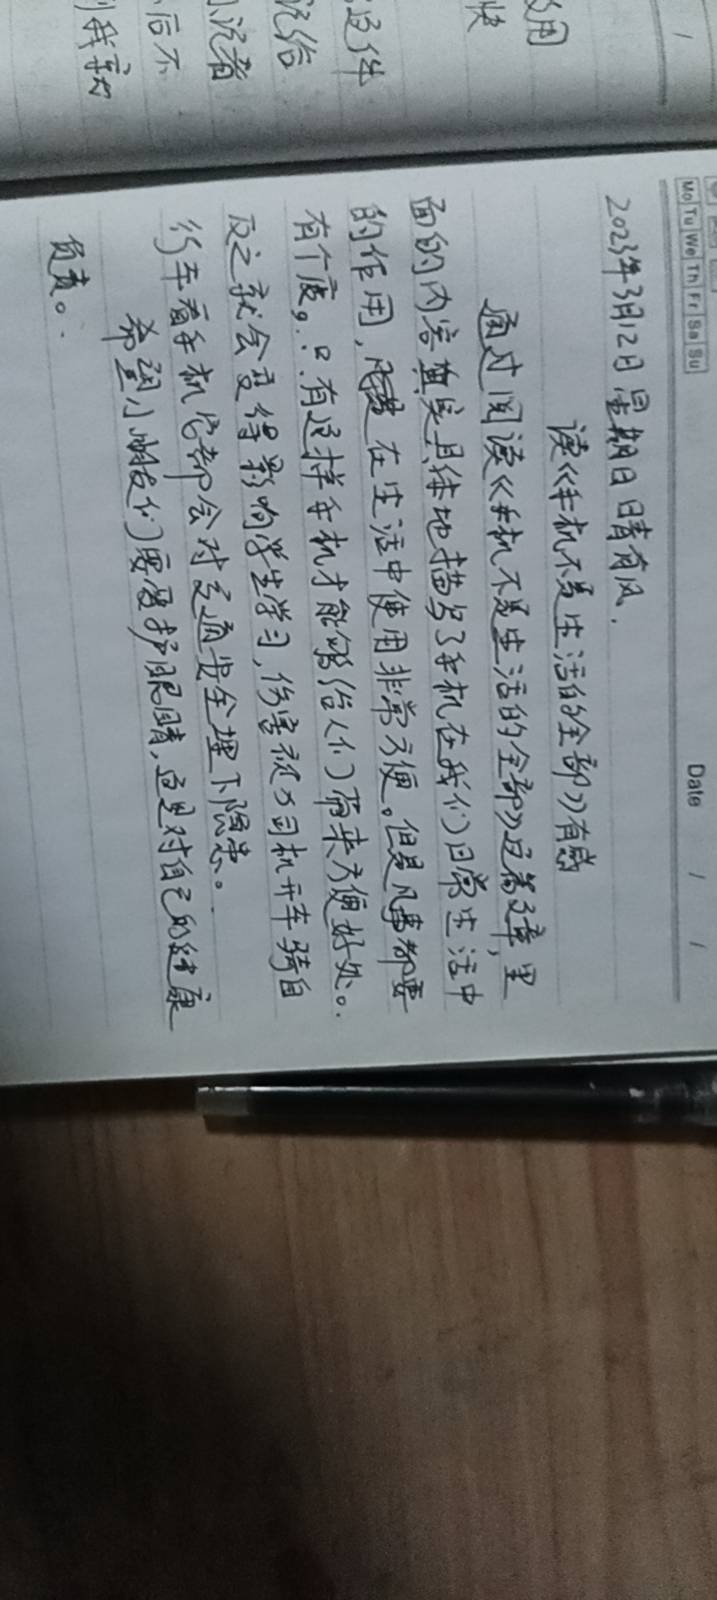 及用
快
这件
况给
况着
后不
到我家
Mo Tu We Th Fr Sa Su
Date / /
2023年3月12日 星期日 晴有风.
读《手机不是生活的全部》有感
通过阅读《手机不是生活的全部》这篇文章,里
面的内容真实具体地描写了手机在我们日常生活中
的作用,在生活中使用非常方便。但是凡事都要
有个度。只有这样手机才能够给人们带来方便好处。
反之就会变得影响学生学习,伤害视力司机开车骑自
行车看手机它都会对交通安全埋下隐患。
希望小朋友们要爱护眼睛,这是对自己的健康
负责。